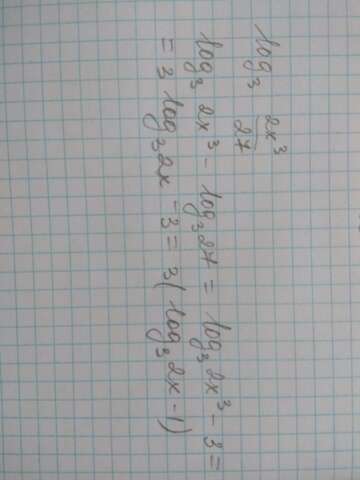 log₃ 2x³/27
log₃ 2x³ - log₃ 27 = log₃ 2x³ - 3 =
= 3 log₃ 2x - 3 = 3( log₃ 2x - 1)